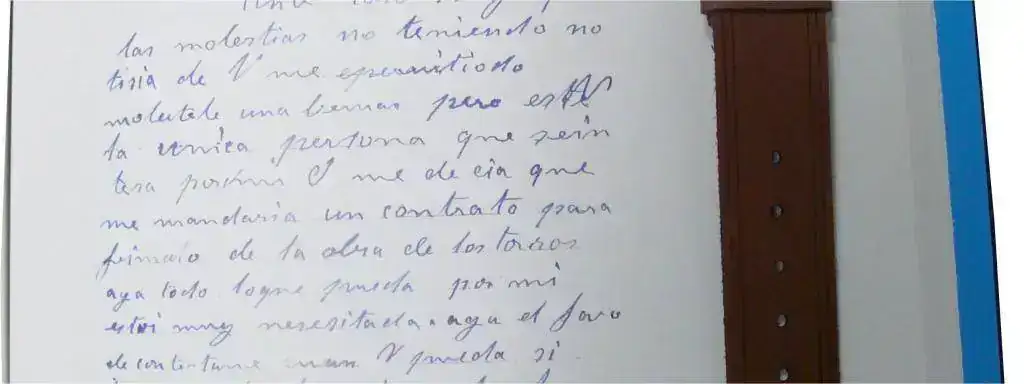 las molestias no teniendo no
tisia de V me
molestele una pero es V
la unica persona que sein
tera por mi V me decia que
me mandaria un contrato para
firmalo de la obra de los toros
aga todo loque pueda por mi
estoi muy nesesitada. aga el favo
de contertarme V pueda si